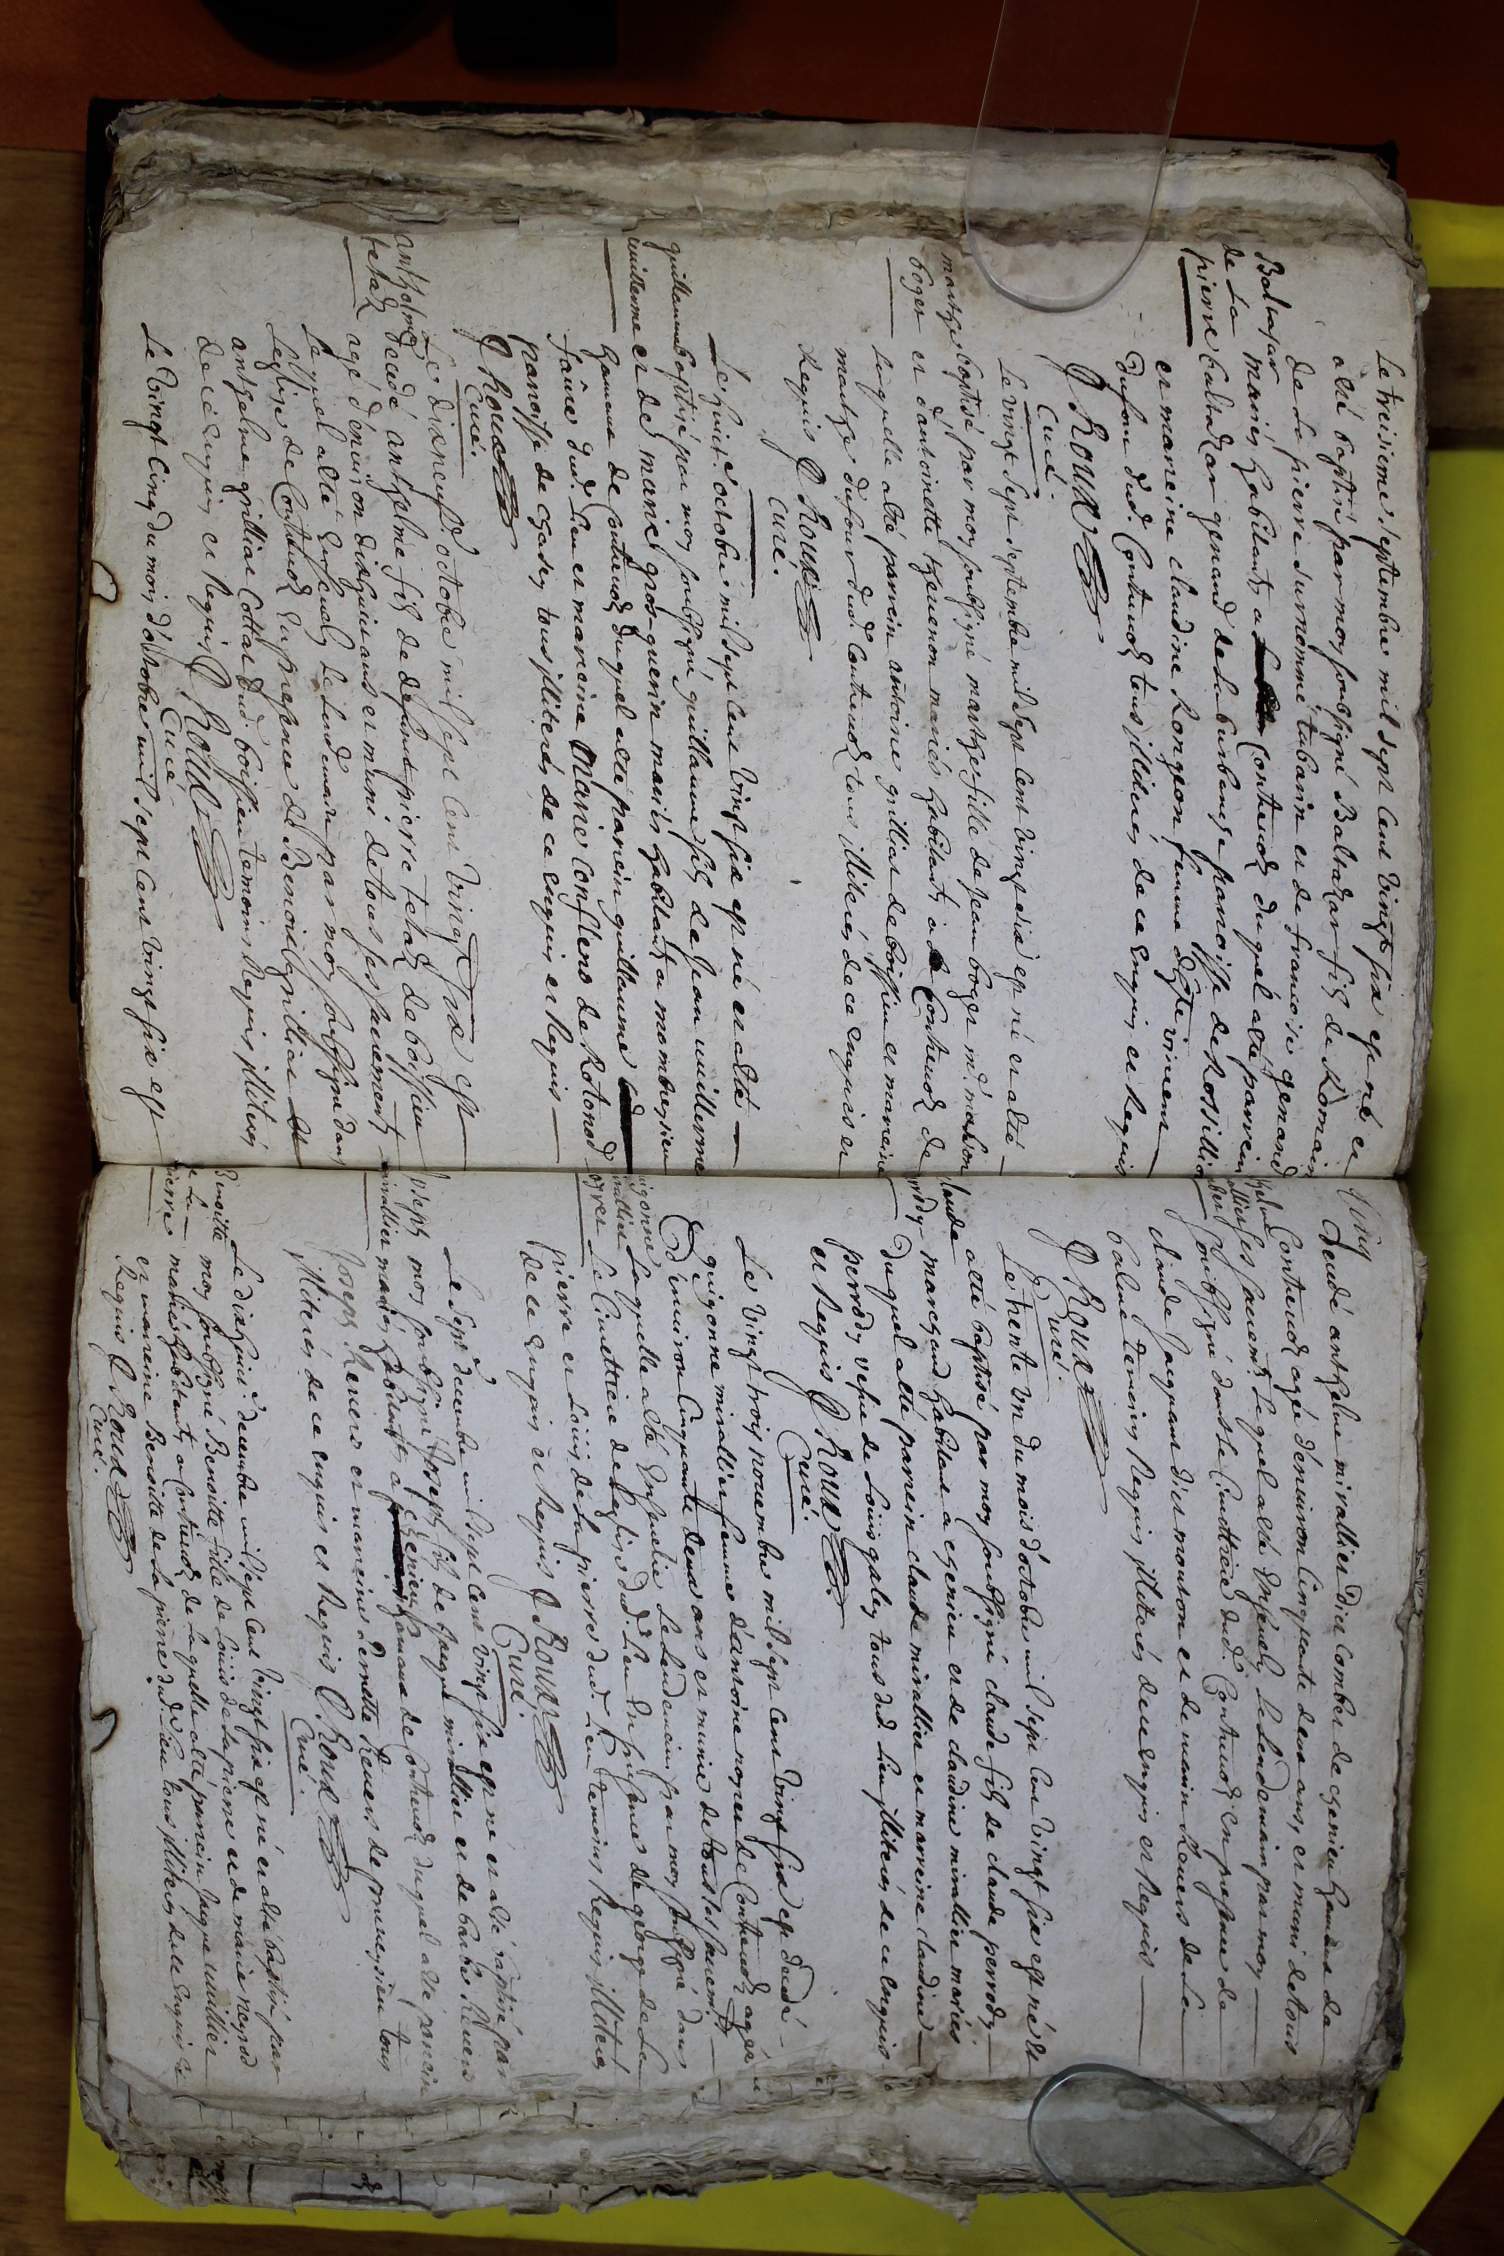 Le treisieme septembre mil sept cent vingt six est né et
a été baptisé par moy soubsigné Baltazar fils de Romain
de la pierre surnommé tabarin et de francoise genand
Baltasar
de la
pierre
mariés habitants a Contrevoz duquel a été parrein
baltazar genand de la burbanche paroisse de Rossillion
et mareine claudine Rongeon femme d'
dufour dud. Contrevoz tous illiterés de ce enquis et Requis
J Roux
Curé.
Le vingt sept septembre mil sept cent vingt six est né et a été
baptisé par moy soubsigné marthe fille de Jean boger md.
marthe
boger
et d'antoinette mariés habitants a Contrevoz de
laquelle a été parrein antoine grilliat de boissieu et marreine
marthe dufour dud. Contrevoz tous illiterés de ce enquis et
Requis J Roux
Curé.
Le huict. octobre mil sept cent vingt six est né et a été
baptisé par moy soubsigné guillaume fils de Jean uuillerme
guillaume
uuillerme
et de marie gros-guerin mariés habitants a
hameau de Contrevoz duquel a été parrein guillaume
dud. lieu et mareine Marie de Rotonod
paroisse de tous illiterés de ce enquis et Requis
J Roux
Curé.
Le dixneuf. octobre mil sept cent vingt six est
anthelme
decedé anthelme fils de defunt pierre de boissieu
agé d'environ dixhuict ans et muni de tous ses sacrements
Lequel a été ensevely le lendemain par moy soubsigné dans
l'eglise de Contrevoz en presence de Benoit grilliat et
anthelme grilliat dud. boissieu temoins Requis illiterés
de ce enquis et Requis J Roux
Curé
Le vingt cinq du mois d'octobre mil sept cent vingt six est
decedé anthelme mirallier dict Comber de cherieu hameau de
Contrevoz agé d'environ cinquante deux ans, et muni de tous
ses sacrements Lequel a été ensevely le lendemain par moy
soubsigné dans le Cimettiere dud. Contrevoz en presence de
claude dict mouton et de Romain Revers de la
balme temoins Requis illiterés de ce enquis et Requis
J Roux
Curé.
Le trente un du mois d'octobre mil sept cent vingt six est né et
a été baptisé par moy soubsigné claude fils de claude perrody
claude
marchand habitant a cherieu et de claudine mirallier mariés
duquel a été parrein claude mirallier et marreine claudine
perrody vefue de Louis galley tous dud. lieu illiterés de ce enquis
et Requis J Roux
Curé.
Le vingt trois novembre mil sept cent vingt six est decedé
guigonne mirallier femme d'antoine noyer de Contrevoz agée
d'environ Cinquante deux ans et munie de tous les sacrements
Laquelle a été ensevelie le lendemain par moy soubsigné dans
le Cimettiere de l'eglise dud. lieu en presence de george de la
pierre et Louis de la pierre dud. lieu temoins Requis illiterés
de ce enquis et Requis J Roux
Curé.
Le sept decembre mil sept cent vingt six est né et a été baptisé par
moy soubsigné Joseph fils de Jaque mirallier et de barbe Revers
mariés habitants a cherieu hameau de Contrevoz duquel a été parrein
Joseph Revers et mareine Revers de tous
illiterés de ce enquis et Requis J Roux
Curé.
Le dixhuict decembre mil sept cent vingt six est né et a été baptisé par
Benoitte
moy soubsigné Benoitte fille de Louis de la pierre et de marie
de la
pierre
mariés habitants a Contrevoz de laquelle a été parrein Jaque uuillier
et mareine Benoitte de la pierre dud. lieu tous illiterés de ce enquis et
Requis J Roux
Curé.